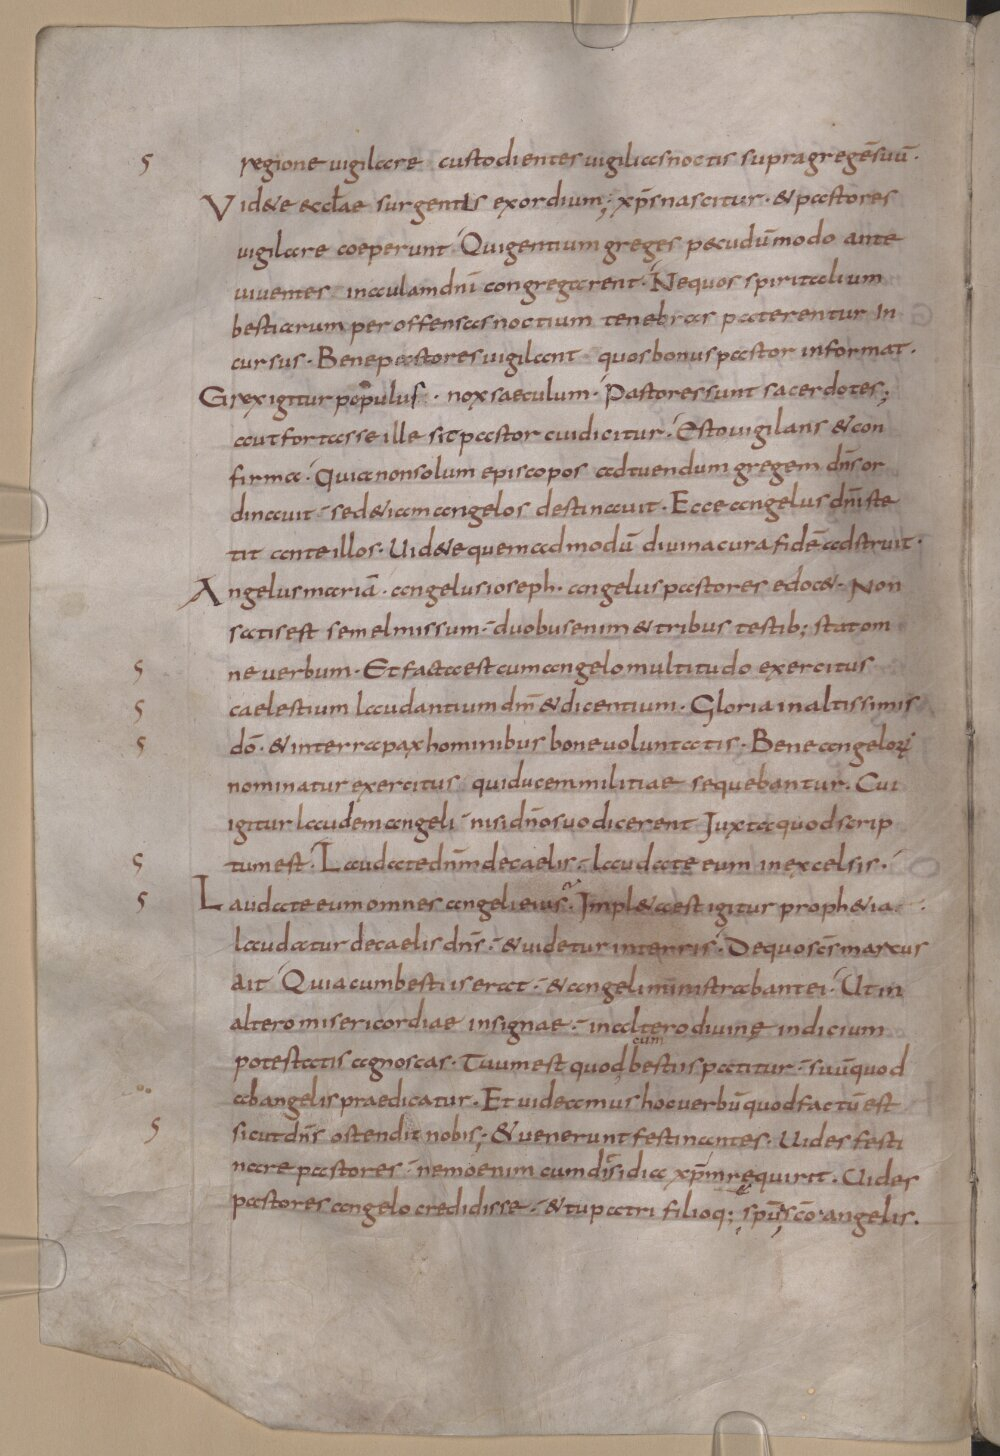 regione uigilare custodientes uigilias noctis supra gregē suū·
Videte eccłae surgentis exordium; xp̄s nascitur· & pastores
uigilare coeperunt· Qui gentium greges pecudū modo ante
uiuentes in aulam dn̄i congregarent· Ne quos spiritalium
bestiarum per offensas noctium tenebras paterentur in
cursus· Bene pastores uigilant quos bonus pastor informat·
Grex igitur populus· nox saeculum· Pastores sunt sacerdotes;
aut fortasse ille sit pastor cui dicitur· Esto uigilans & con
firma· Quia non solum episcopos ad tuendum gregem dn̄s or
dinauit· sed &iam angelos destinauit· Ecce angelus dn̄i ste
tit ante illos· Uid&e quemadmodū diuina cura fidē adstruit·
Angelus mariā· angelus ioseph· angelus pastores edoc&· Non
satis est semel missum· duobus enim & tribus testib; stat om
ne uerbum· Et facta est cum angelo multitudo exercitus
caelestium laudantium dm̄ & dicentium· Gloria in altissimis
dō· & in terra pax hominibus bone uoluntatis· Bene angeloꝝ
nominatur exercitus qui ducem militiae sequebantur· Cui
igitur laudem angeli nisi dn̄o suo dicerent Juxta quod scrip
tum est· Laudate dn̄m de caelis· laudate eum in excelsis·
Laudate eum omnes angeli eius· Impl&a est igitur proph&ia·
laudatur de caelis dn̄s· & uidetur in terris· De quo sc̄s marcus
ait Quia cum bestiis erat· & angeli ministrabant ei· Ut in
altero misericordiae insignae· in altero diuinę indicium
cum
potestatis agnoscas· Tuum est quod bestiis patitur· suū quod
ab angelis praedicatur· Et uideamus hoc uerbū quod factū est
sicut dn̄s ostendit nobis; & uenerunt festinantes· Uides festi
nare pastores· nemo enim cum disidia xp̄m requirit· Uides
pastores angelo credidisse· & tu patri filioq; sp̄u sc̄o· angelis·